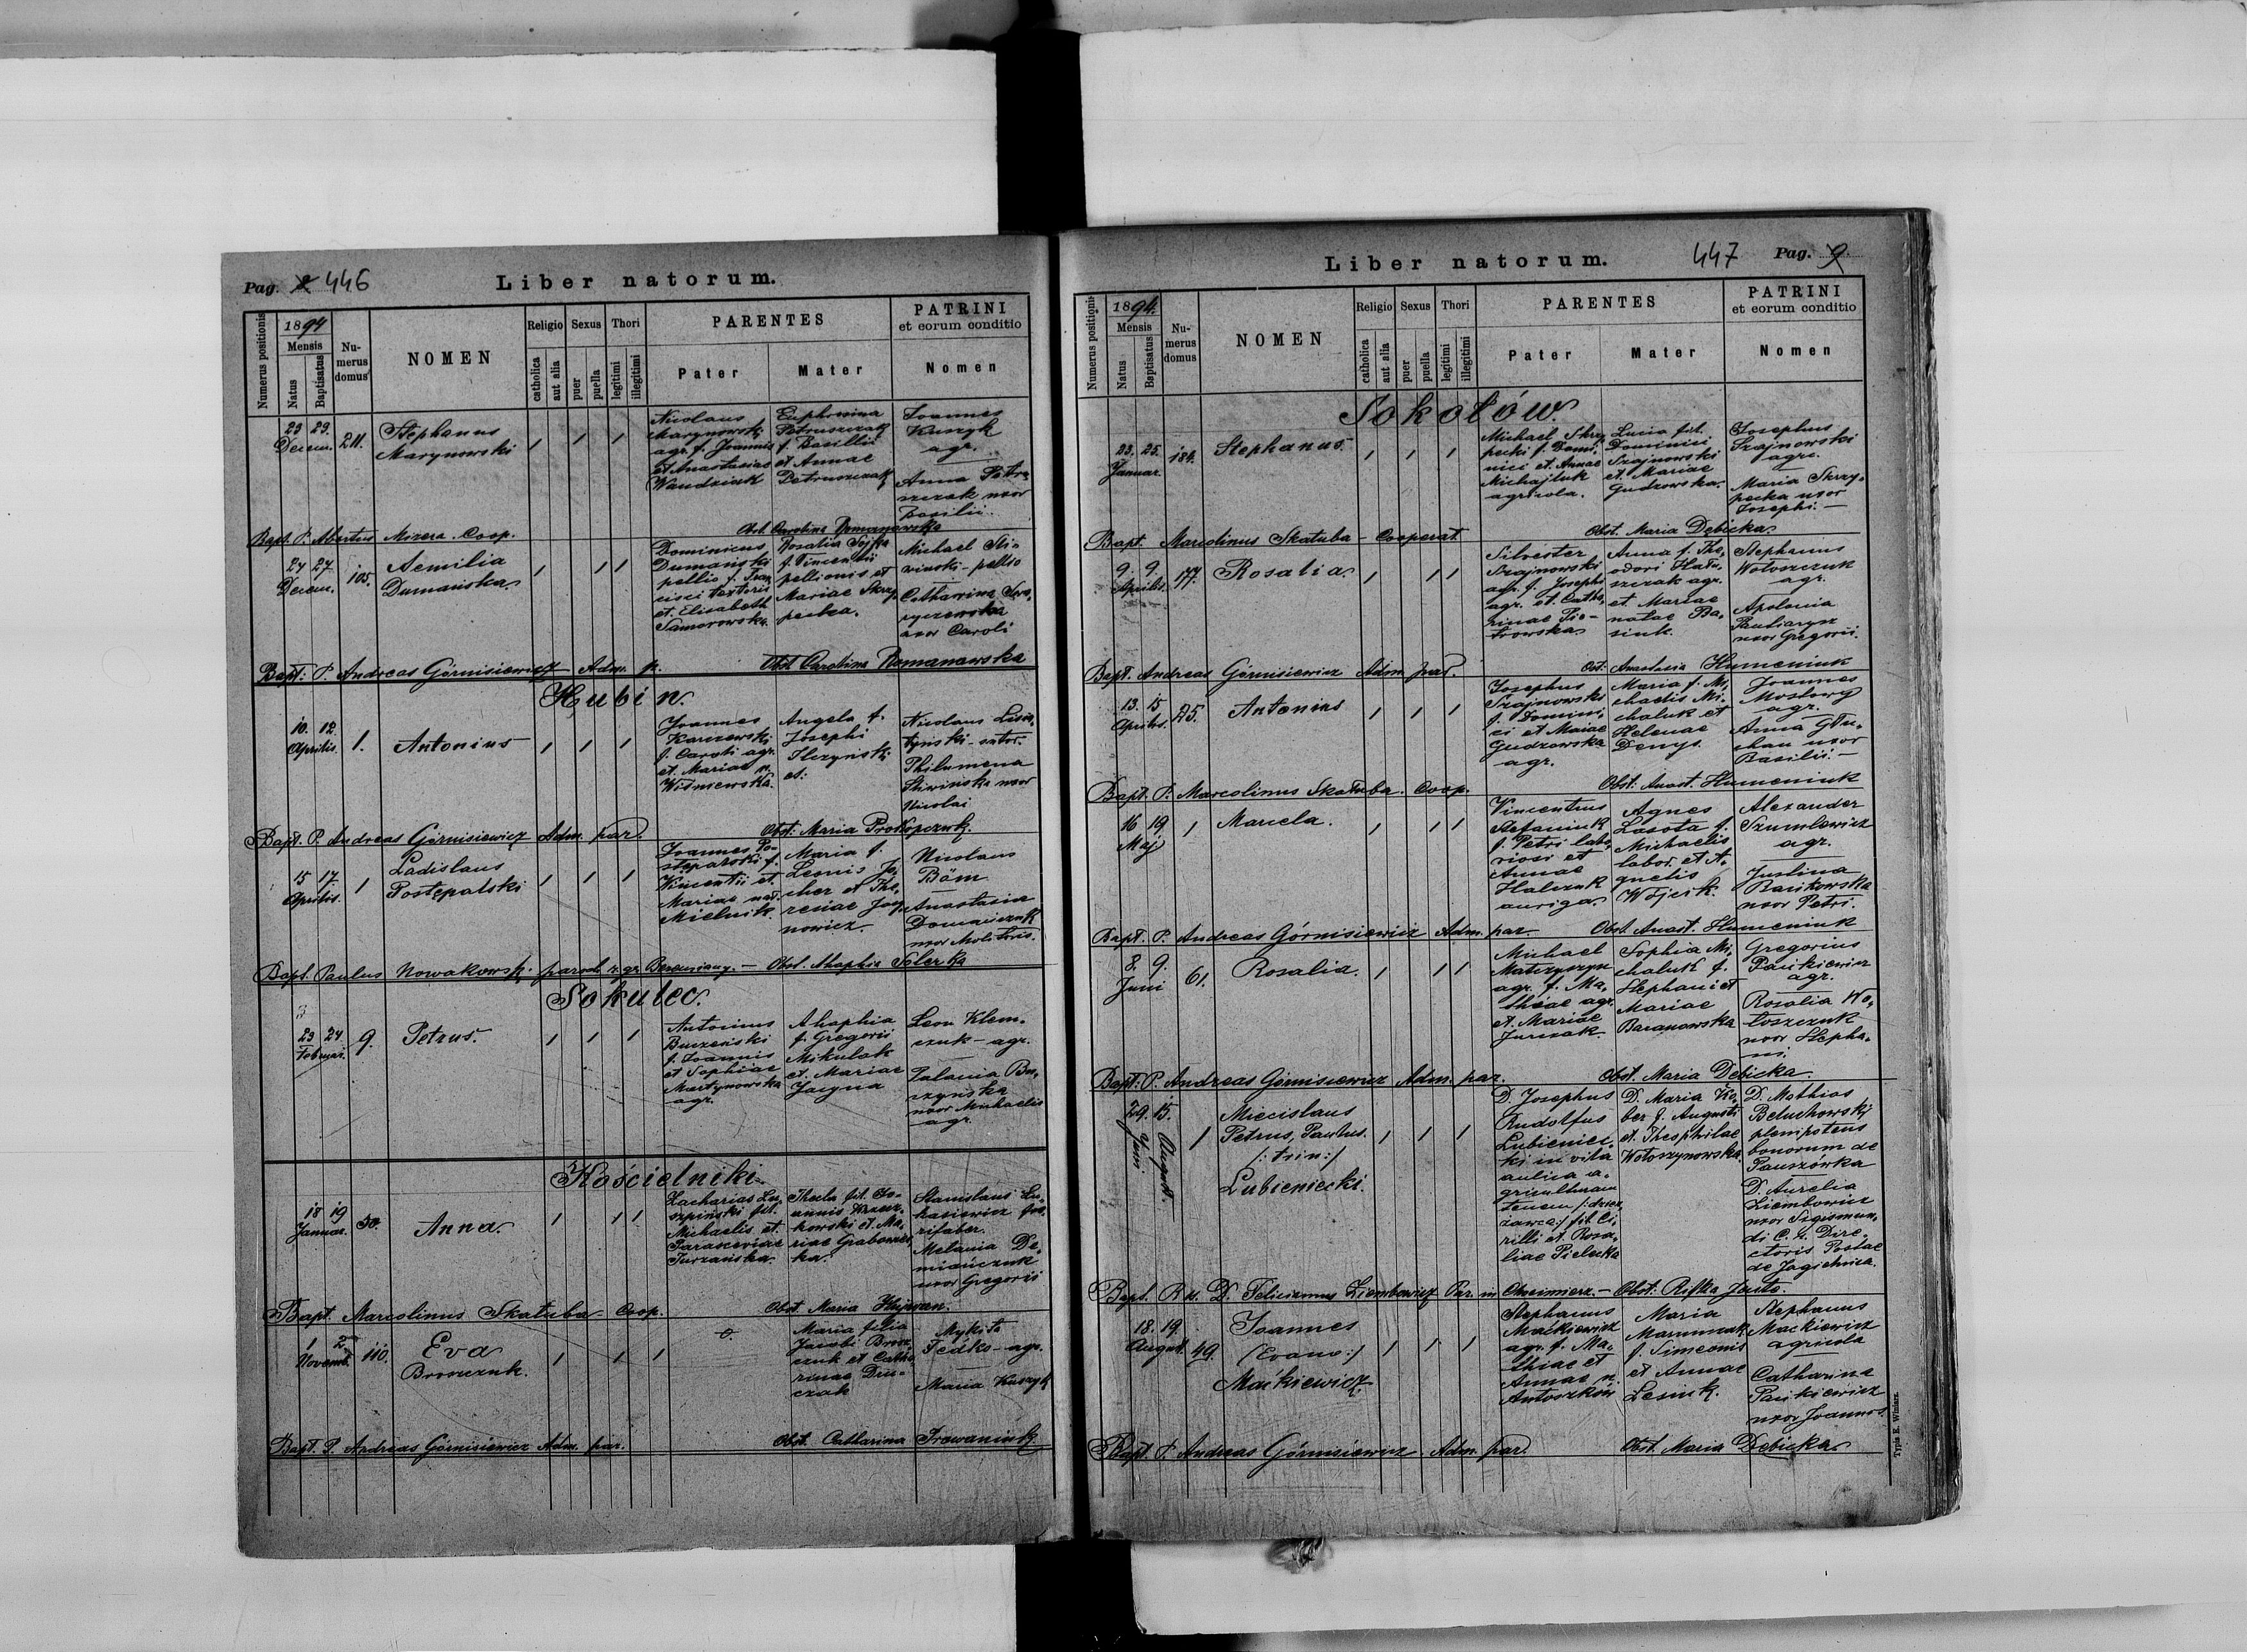 Pag. 8 446
Liber natorum.
Numerus positionis
1894
Mensis
Natus
Baptisatus
Nu-
merus
domus
NOMEN
Religio
catholica
aut alia
Sexus
puer
puella
Thori
legitimi
illegitimi
PARENTES
Pater
Mater
PATRINI
et eorum conditio
Nomen
29 29.
Decem.
211.
Stephanus
Marynowski
Nicolaus
Marynowski
agr. f. Joannis
et Anastasiae
Wandziak
Euphrosina
Petruszczak
f. Basilii
et Annae
Petruszczak
Joannes
Kuszyk
agr.
Anna Petru-
szczak uxor
Basilii.
Bapt. P. Albertus Mizera Coop.
Obst. Carolina Romanowska
27 27.
Decem.
105.
Aemilia
Dumańska.
Dominicus
Dumański
pellio f. Fran
cisci textoris
et Elisabeth
Samorowska.
Rosalia Sojka
f. Vincentii
pellionis et
Mariae Skrzy
pecka.
Michael Sli-
winski - pellio
Catharina
uxor Caroli
Bapt: P. Andreas Górnisiewicz Adm. p.
Obst. Carolina Romanowska
Hubin.
10. 12.
Aprilis.
1.
Antonius
Joannes
Karczewski
f. Caroli agr.
et Mariae n.
Wiśniewska.
Angela f.
Josephi
Ilczynski
et:
Nicolaus Liśia-
tyński - sutor.
Philumena
Sliwinska uxor
Nicolai
Bapt. P. Andreas Górnisiewicz Adm. par.
Obst: Maria Prokopczuk.
15 17.
Aprilis.
1
Ladislaus
Postępalski
Joannes Po-
stępalski f.
Vincentii et
Mariae nat.
Mielnik.
Maria f.
Leonis Je-
cher et The-
resiae Jozy-
nowicz.
Nicolaus
Böm
Anastasia
Domańczuk
uxor Molitoris.
Bapt. Paulus Nowakowski paroch. r. gr. Berezniany. - Obst. Ahaphia Solerka
Sokulec.
23 24
Februar.
9.
Petrus.
Antonius
Burzeński
f. Joannis
et Sophiae
Martynowska
agr.
Ahaphia
f. Gregorii
Mikulak
et Mariae
Jacyna
Leon Klem-
czuk - agr.
Palania Bu-
rzyńska
uxor Michaelis
agr.
Kościelniki.
18 19
Januar.
50.
Anna.
Zacharias Lu-
szpiński fil.
Michaelis et
Parasceviae
Turzańska.
Thecla fil. Jo-
annis
kowski et Ma-
riae Grabowiec-
ka.
Stanislaus Lu-
kasiewicz fer-
rifaber.
Melania De-
miańczuk
uxor Gregorii
Bapt. Marcolinus Skałuba - Coop.
Obst. Maria
1 2
Novemb.
110.
Eva
Broszczuk.
o.
Maria filia
Jacobi Brosz-
czuk et Catha-
rinae Dru-
czak
Mykita
Fedko - agr.
Maria Kuszyk
Bapt. P. Andreas Górnisiewicz Adm. par.
Obst. Catharina Irowaniuk
Liber natorum.
447 Pag. 9.
Numerus positionis
1894.
Mensis
Natus
Baptisatus
Nu-
merus
domus
NOMEN
Religio
catholica
aut alia
Sexus
puer
puella
Thori
legitimi
illegitimi
PARENTES
Pater
Mater
PATRINI
et eorum conditio
Nomen
Sokołów.
23. 25.
Januar.
184.
Stephanus.
Michael Skrzy-
pecki f. Domi-
nici et Annae
Michajluk
agricola.
Lucia fil.
Dominici
Szajnowski
et Mariae
Gudzowska.
Josephus
Szajnowski
agr.
Maria Skrzy-
pecka uxor
Josephi. -
Bapt. Marcolinus Skałuba - Cooperat.
Obst. Maria Dębicka.
9. 9.
Aprilis.
177.
Rosalia.
Silvester
Szajnowski
agr. f. Josephi
agr. et Catha-
rinae Pie-
trowska
Anna f. The-
odori Hału-
szczak agr.
et Mariae
natae Ba-
siuk.
Stephanus
Wołoszczuk
agr.
Apolonia
Panharyn
uxor Gregorii.
Bapt. Andreas Górnisiewicz Adm. par.
Obst: Anastasia Humeniuk
13. 15
Aprilis.
25.
Antonius
Josephus
Szajnowski
f. Domini-
ci et Mariae
Gudzowska
agr.
Maria f. Mi-
chaelis Mi-
chaluk et
Helenae
Denys.
Joannes
Mostowy
agr.
Anna Głu-
chan uxor
Basilii. -
Bapt. P. Marcolinus Skałuba. Coop.
Obst. Anast. Humeniuk
16 19
Maj
1
Marcela.
Vincentius
Stefaniuk
f. Petri labo-
riosi et
Annae
Halczuk
auriga.
Agnes
Lasota f.
Michaelis
labor. et A-
gnetis
Wójcik.
Alexander
Szumlewicz
agr.
Justina
Basikowska
uxor Petri.
Bapt. P. Andreas Górnisiewicz Adm. par.
Obst. Anast. Humeniuk
8. 9.
Juni
61.
Rosalia.
Michael
Matczyszyn
agr. f. Ma-
thiae agr.
et Mariae
Jurczak.
Sophia Mi-
chaluk f.
Stephani et
Mariae
Baranowska
Gregorius
Paćkiewicz
agr.
Rosalia Wo-
łoszczuk
uxor Stepha-
ni.
Bapt: P. Andreas Górnisiewicz Adm. par.
Obst. Maria Dębicka.
29. 15.
Juni
August.
1
Miecislaus
Petrus, Paulus.
/: trin :/
Lubieniecki.
D. Josephus
Rudolfus
Lubieniec-
ki in villa
aulica a-
griculturam
tenens /: dzier-
żawca :/ fil. Ci-
rilli et Rosa-
liae Pielecka
D. Maria Ko-
ber f. Augusti
et Theophilae
Wołoszynowska.
D. Mathias
Bełuchowski
plenipotens
bonorum de
Pauszówka
D. Aurelia
Ziembowicz
uxor Sigismun-
di C. R. Dire-
ctoris Postae
de Jagielnica.
Bapt. R. D. Felicianus Ziembowicz Par. in - Obst: Rifka Jauts.
18. 19.
August.
49.
Joannes
(Evanv :/
Maćkiewicz
Stephanus
Maćkiewicz
agr. f. Ma-
thiae et
Annae n.
Antoszków
Maria
Marunczak
f. Simeonis
et Annae
Lesiuk.
Stephanus
Maćkiewicz
agricola
Catharina
Paćkiewicz
uxor Joannis.
Bapt. P. Andreas Górnisiewicz Adm. par.
Obst. Maria Dębicka
Typis E. Winiarz.